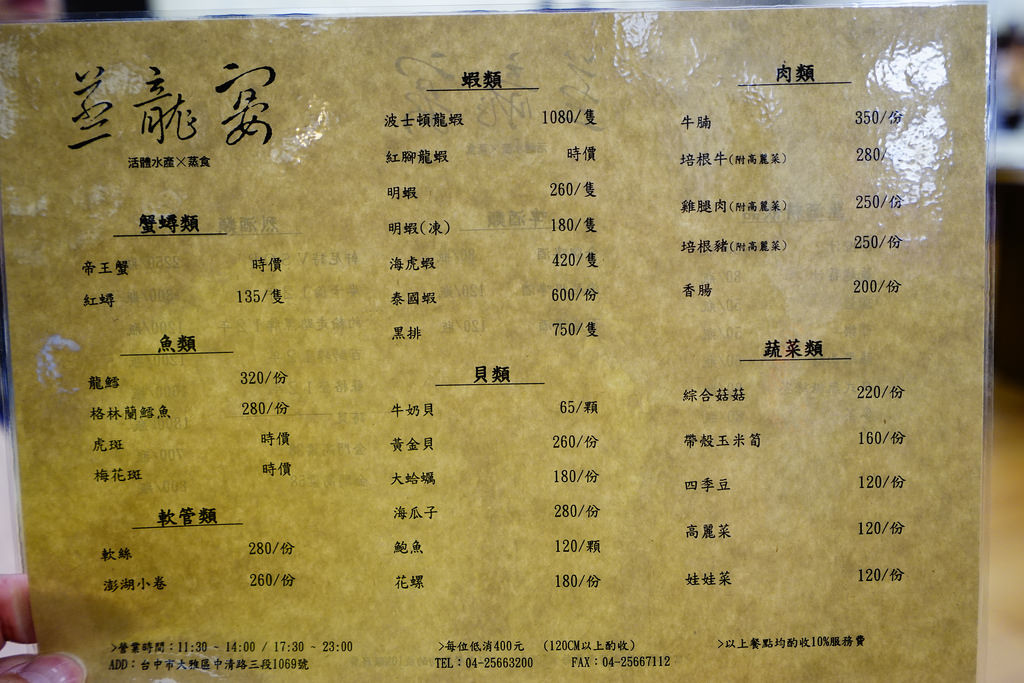 蒸龍宴
活體水產×蒸食
蟹蟳類
帝王蟹 時價
紅蟳 135/隻
魚類
龍鱈 320/份
格林蘭鱈魚 280/份
虎斑 時價
梅花斑 時價
軟管類
軟絲 280/份
澎湖小卷 260/份
蝦類
波士頓龍蝦 1080/隻
紅腳龍蝦 時價
明蝦 260/隻
明蝦(凍) 180/隻
海虎蝦 420/隻
泰國蝦 600/份
黑排 750/隻
貝類
牛奶貝 65/顆
黃金貝 260/份
大蛤蠣 180/份
海瓜子 280/份
鮑魚 120/顆
花螺 180/份
肉類
牛腩 350/份
培根牛(附高麗菜) 280/
雞腿肉(附高麗菜) 250/份
培根豬(附高麗菜) 250/份
香腸 200/份
蔬菜類
綜合菇菇 220/份
帶殼玉米筍 160/份
四季豆 120/份
高麗菜 120/份
娃娃菜 120/份
>營業時間：11:30 ~ 14:00 / 17:30 ~ 23:00
ADD：台中市大雅區中清路三段1069號
>每位低消400元 (120CM以上酌收)
TEL：04-25663200 FAX：04-25667112
>以上餐點均酌收10%服務費